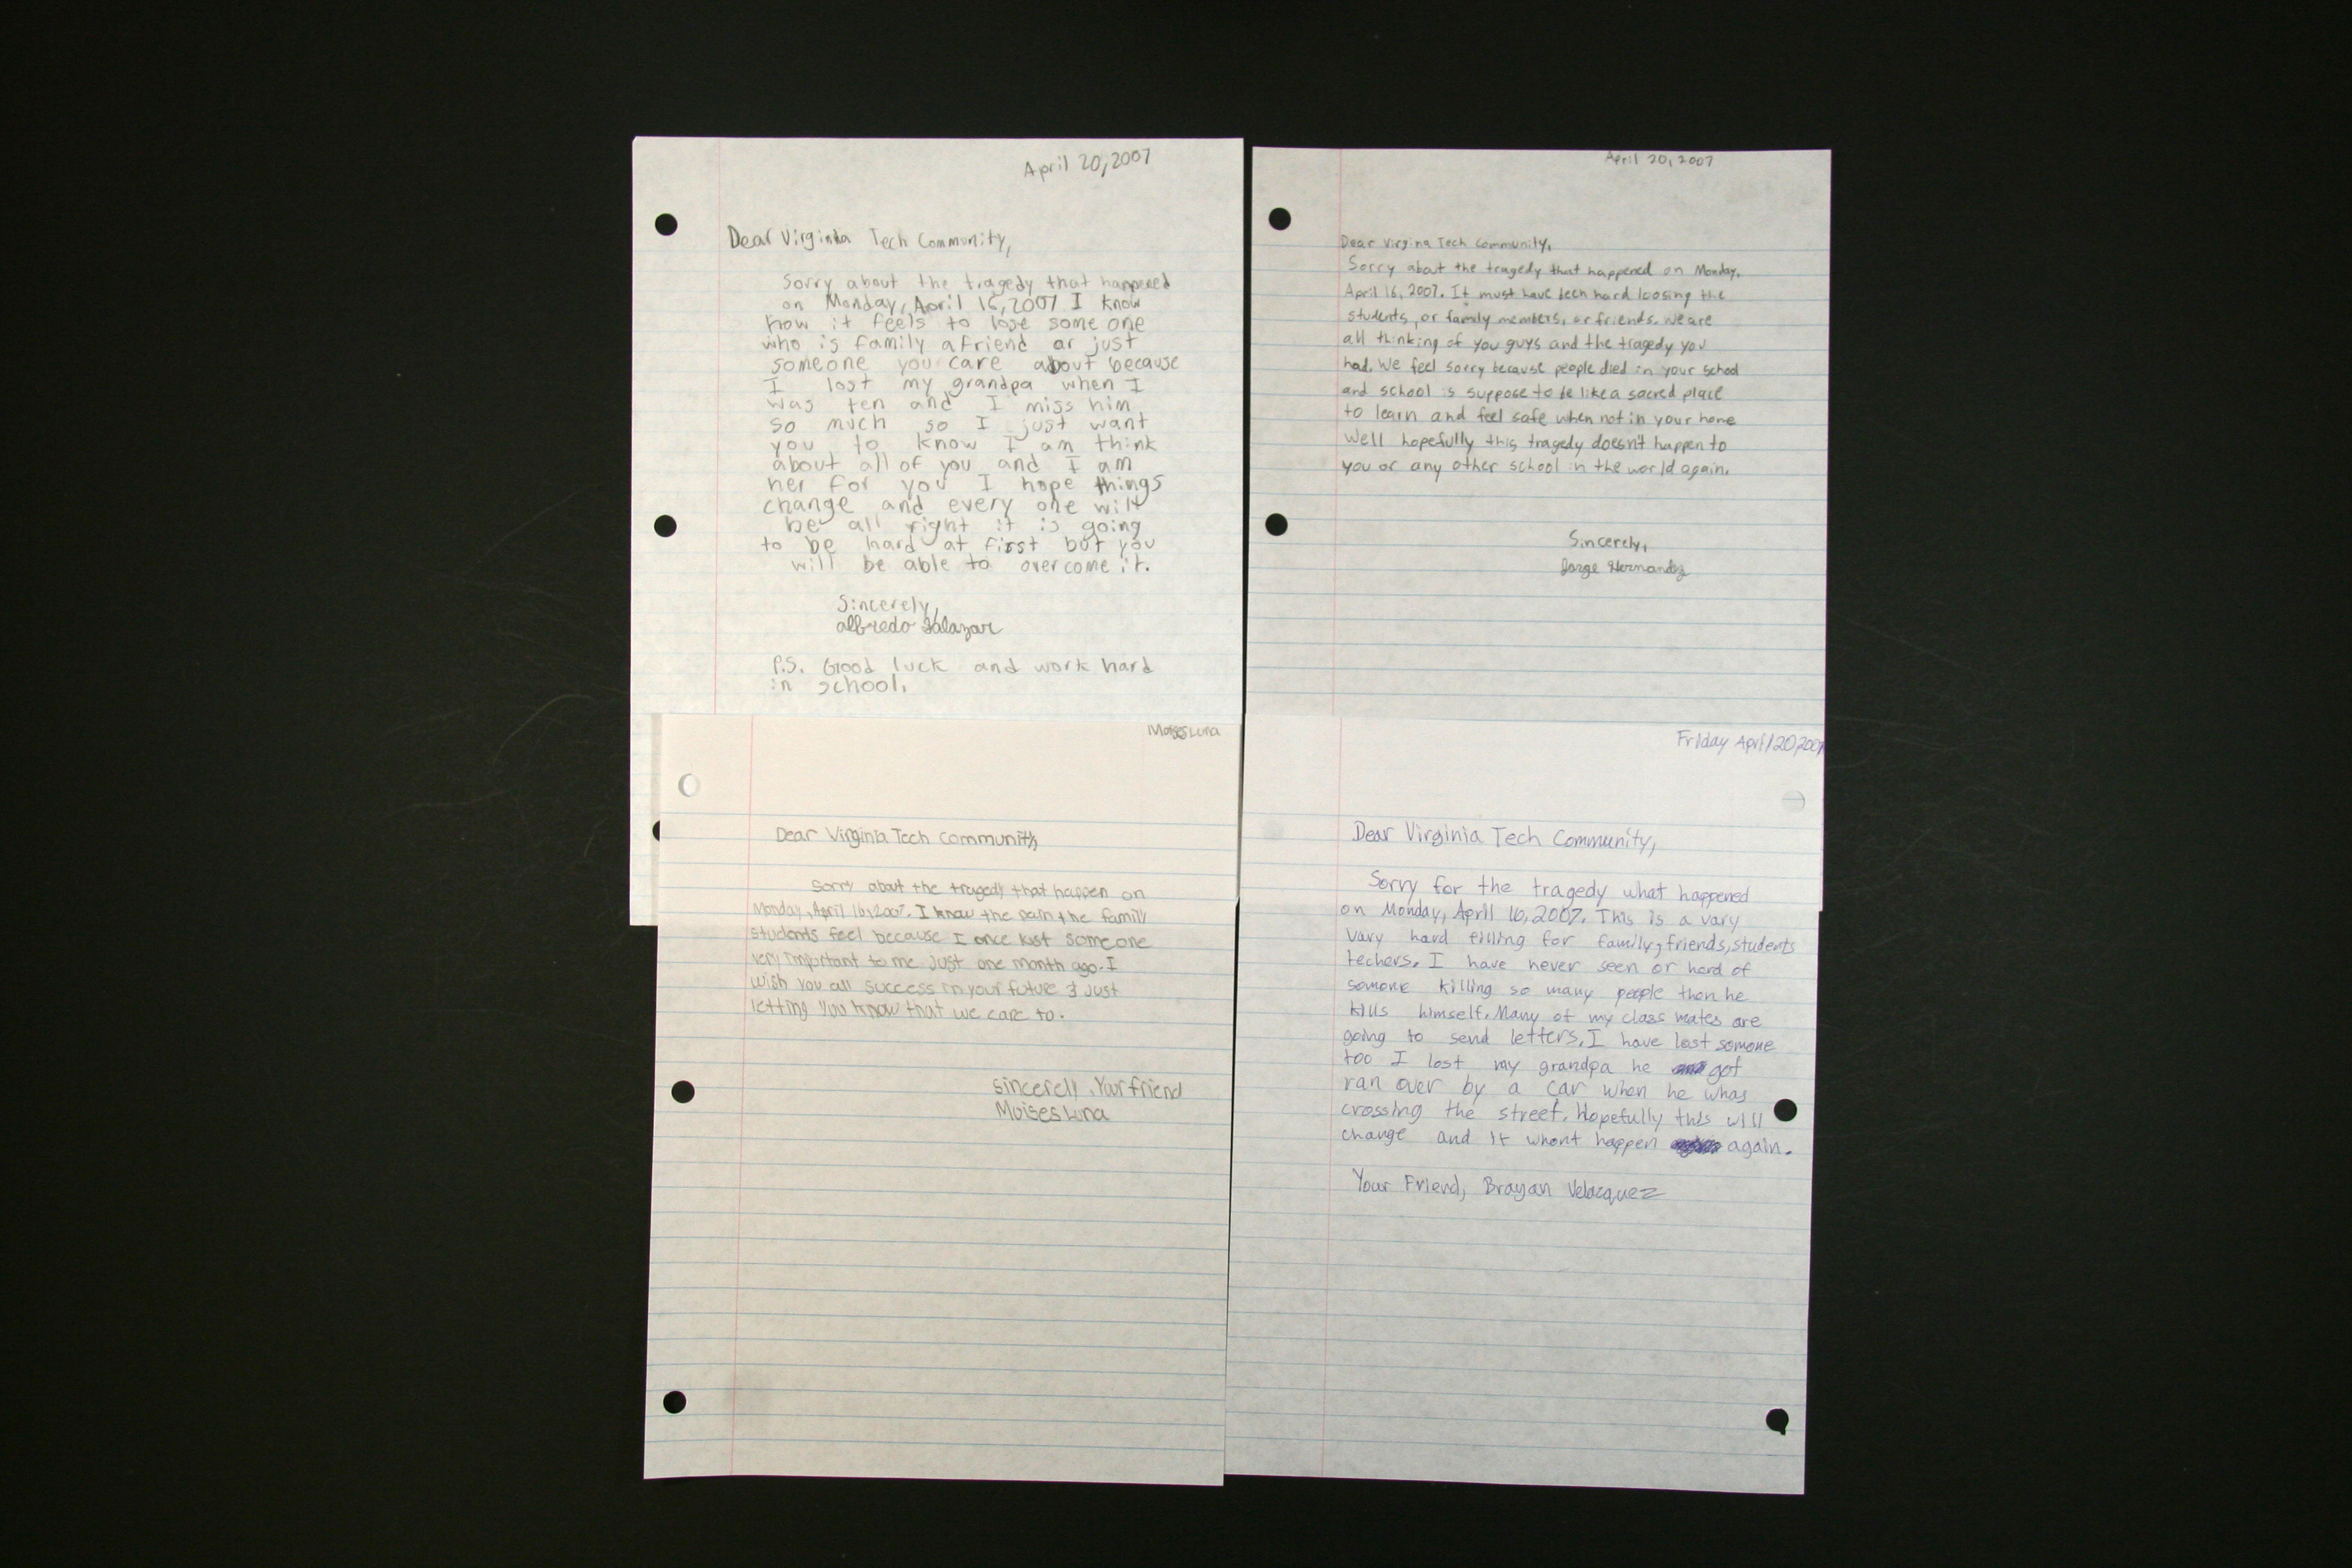 April 20, 2007
Dear Virginia Tech Community,
Sorry about the tragedy that happened
on Monday, April 16, 2007 I know
how it feels to lose some one
who is family a friend or just
someone you care about because
I lost my grandpa when I
was ten and I miss him
so much so I just want
you to know I am think
about all of you and I am
her for you I hope things
change and every one will
be all right it is going
to be hard at first but you
will be able to over come it.
Sincerely,
alfredo Salazar
P.S. Good luck and work hard
in school.
April 20, 2007
Dear Virgina Tech Community,
Sorry about the tragedy that happened on Monday,
April 16, 2007. It must have been hard loosing the
students, or family members, or friends. We are
all thinking of you guys and the tragedy you
had. We feel sorry because people died in your school
and school is suppose to be like a sacred place
to learn and feel safe when not in your home
Well hopefully this tragedy doesn't happen to
you or any other school in the world again.
Sincerely,
Jorge Hernandez
Moises Luna
Dear Virginia Tech Community,
Sorry about the tragedy that happen on
Monday, April 16, 2007. I know the pain the family
students feel because I once lost someone
very important to me just one month ago. I
wish you all success in your future & Just
letting you know that we care to.
sincerely, Your friend
Moises Luna
Friday April 20, 2007
Dear Virginia Tech Community,
Sorry for the tragedy what happened
on Monday, April 16, 2007. This is a vary
vary hard filling for family, friends, students
techers. I have never seen or herd of
somone killing so many people then he
kills himself. Many of my class mates are
going to send letters. I have lost somone
too I lost my grandpa he got
ran over by a car when he whas
crossing the street. Hopefully this will
change and it whont happen again.
Your Friend, Brayan Velacquez